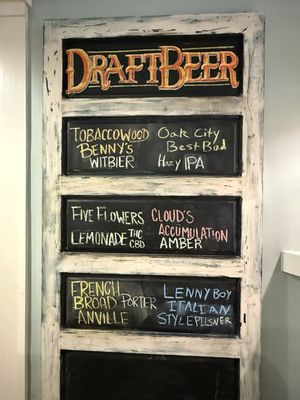 DRAFT BEER
TOBACCOWOOD
BENNY'S
WITBIER
Oak City
Best Bad
Hazy IPA
FIVE FLOWERS
LEMONADE THC
CBD
CLOUD'S
ACCUMULATION
AMBER
FRENCH
BROAD PORTER
ANVILLE
LENNY BOY
ITALIAN
STYLE PILSNER